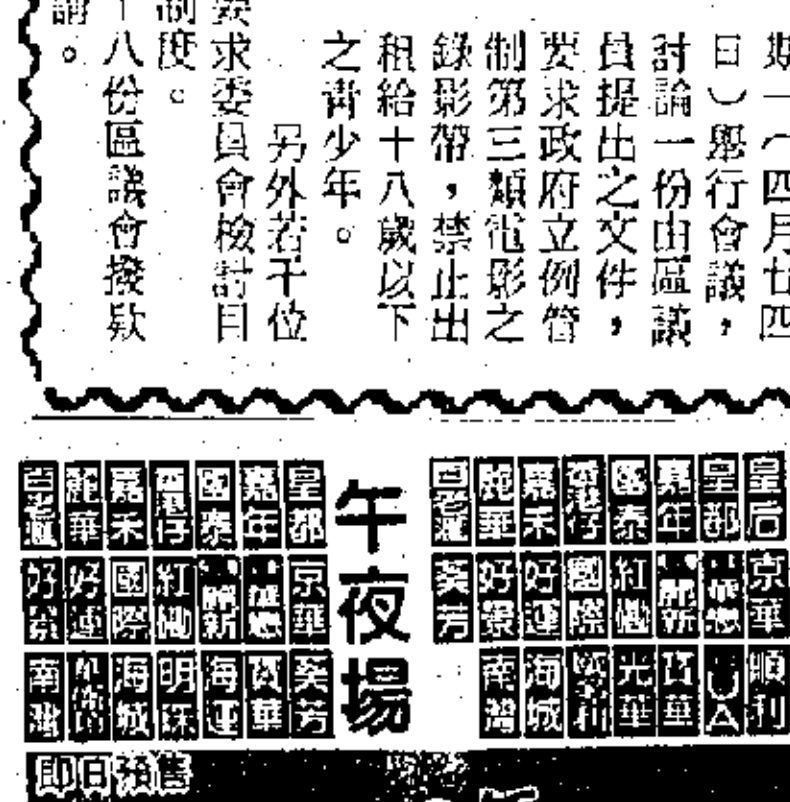 期一（四月廿四
日）舉行會議，
討論一份由區議
員提出之文件，
要求政府立例管
制第三類電影之
錄影帶，禁止出
租給十八歲以下
之青少年。
另外若干位
要求委員會檢討目
制度。
十八份區議會撥款
請。
皇后 皇都 嘉年 國泰 香港仔 嘉禾 麗華 百老滙
京華 華懋 麗新 紅磡 國際 好運 好景 葵芳
順利 UA 寶華 光華 海城 南灣
午夜場
皇都 嘉年 國泰 香港仔 嘉禾 麗華 百老滙
京華 華懋 麗新 紅磡 國際 好運 好景
葵芳 寶華 海運 明珠 海城 南灣
即日預售